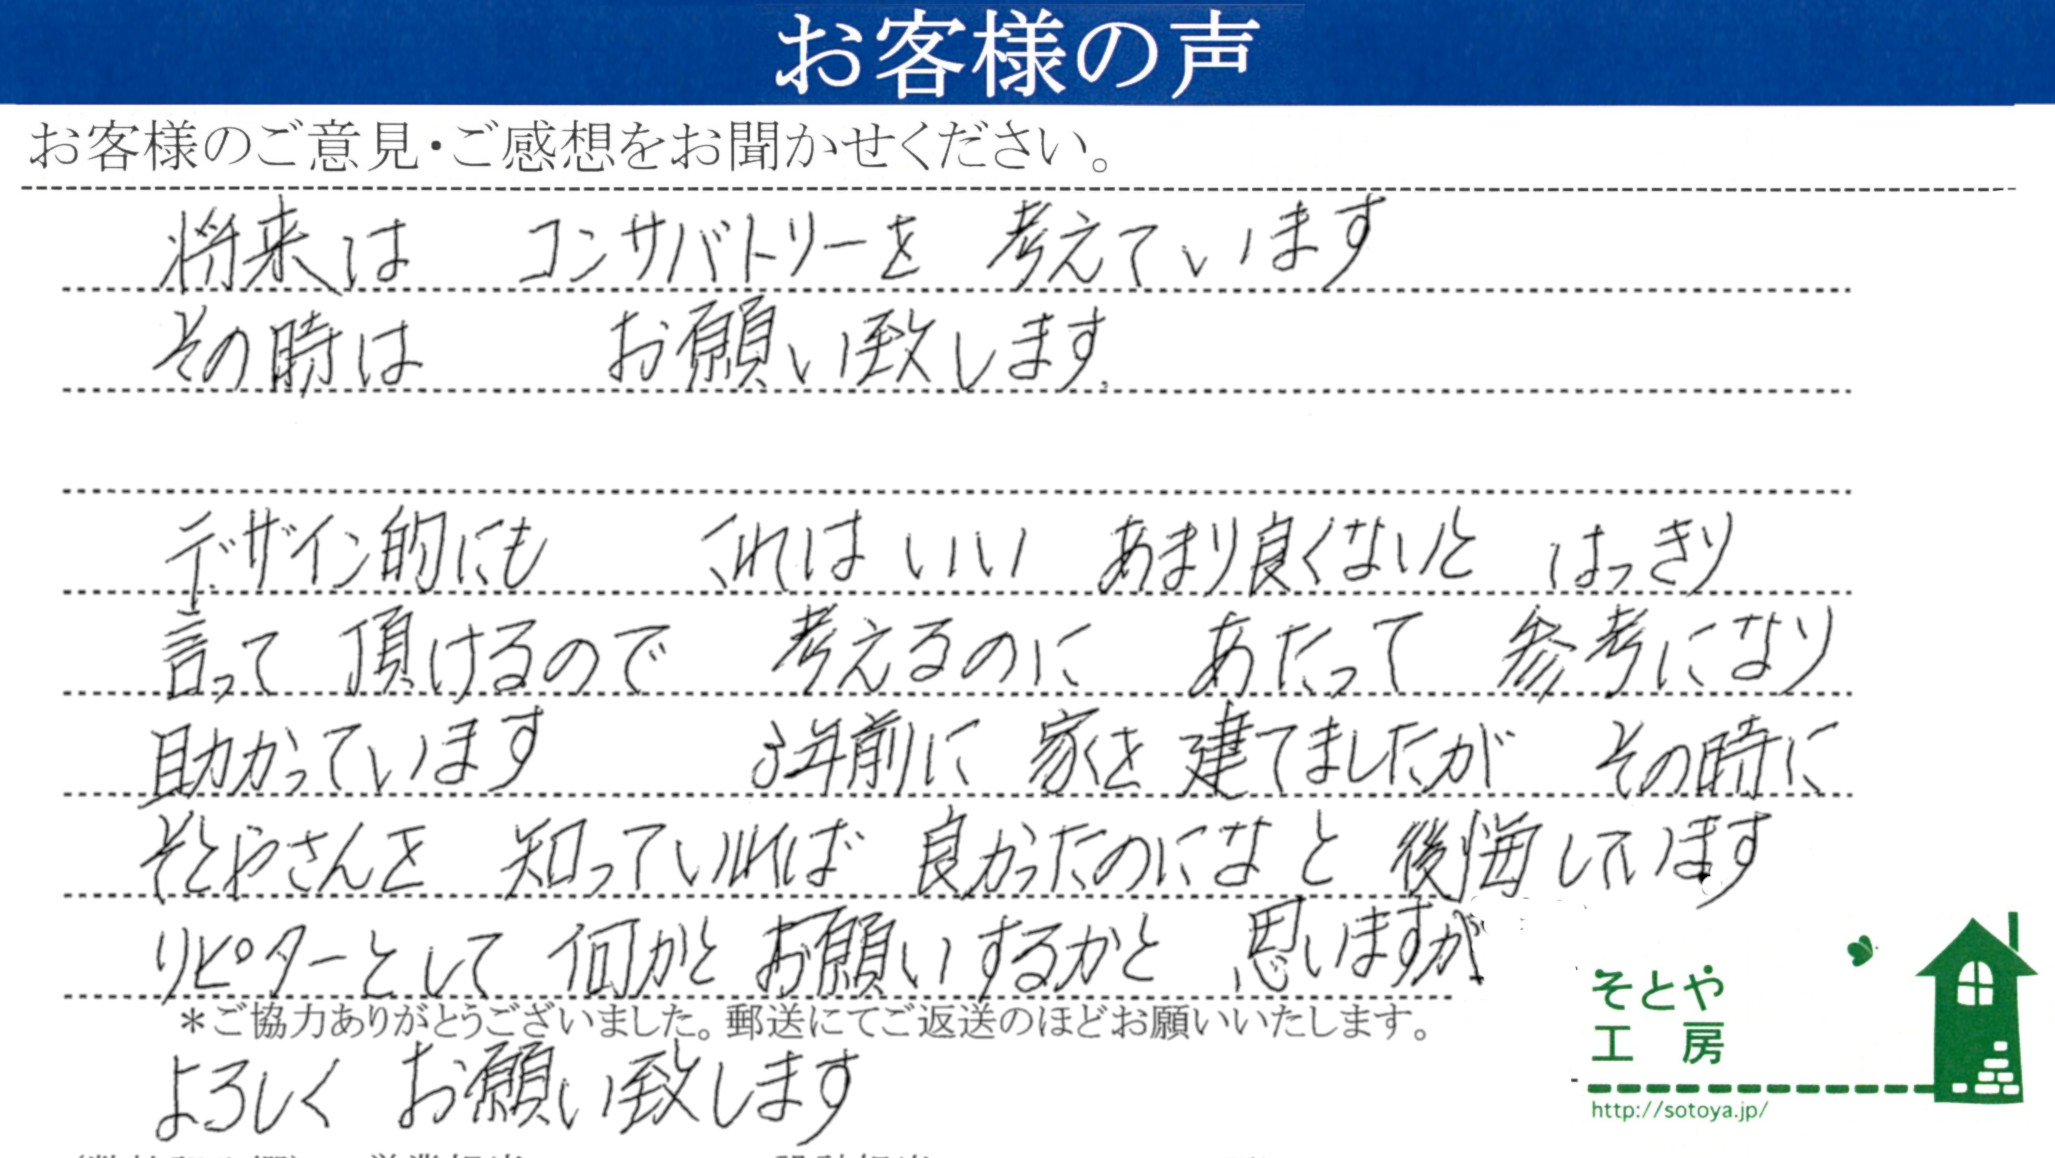 お客様の声
お客様のご意見・ご感想をお聞かせください。
将来は コンサバトリーを 考えています
その時は お願い致します。
デザイン的にも これは いい あまり良くないと はっきり
言って 頂けるので 考えるのに あたって 参考になり
助かっています 3年前に 家を 建てましたが その時に
そとやさんを 知っていれば 良かったのになと 後悔しています
リピターとして 何かと お願いするかと 思いますが
＊ご協力ありがとうございました。郵送にてご返送のほどお願いいたします。
よろしく お願い致します
そとや
工房
http://sotoya.jp/